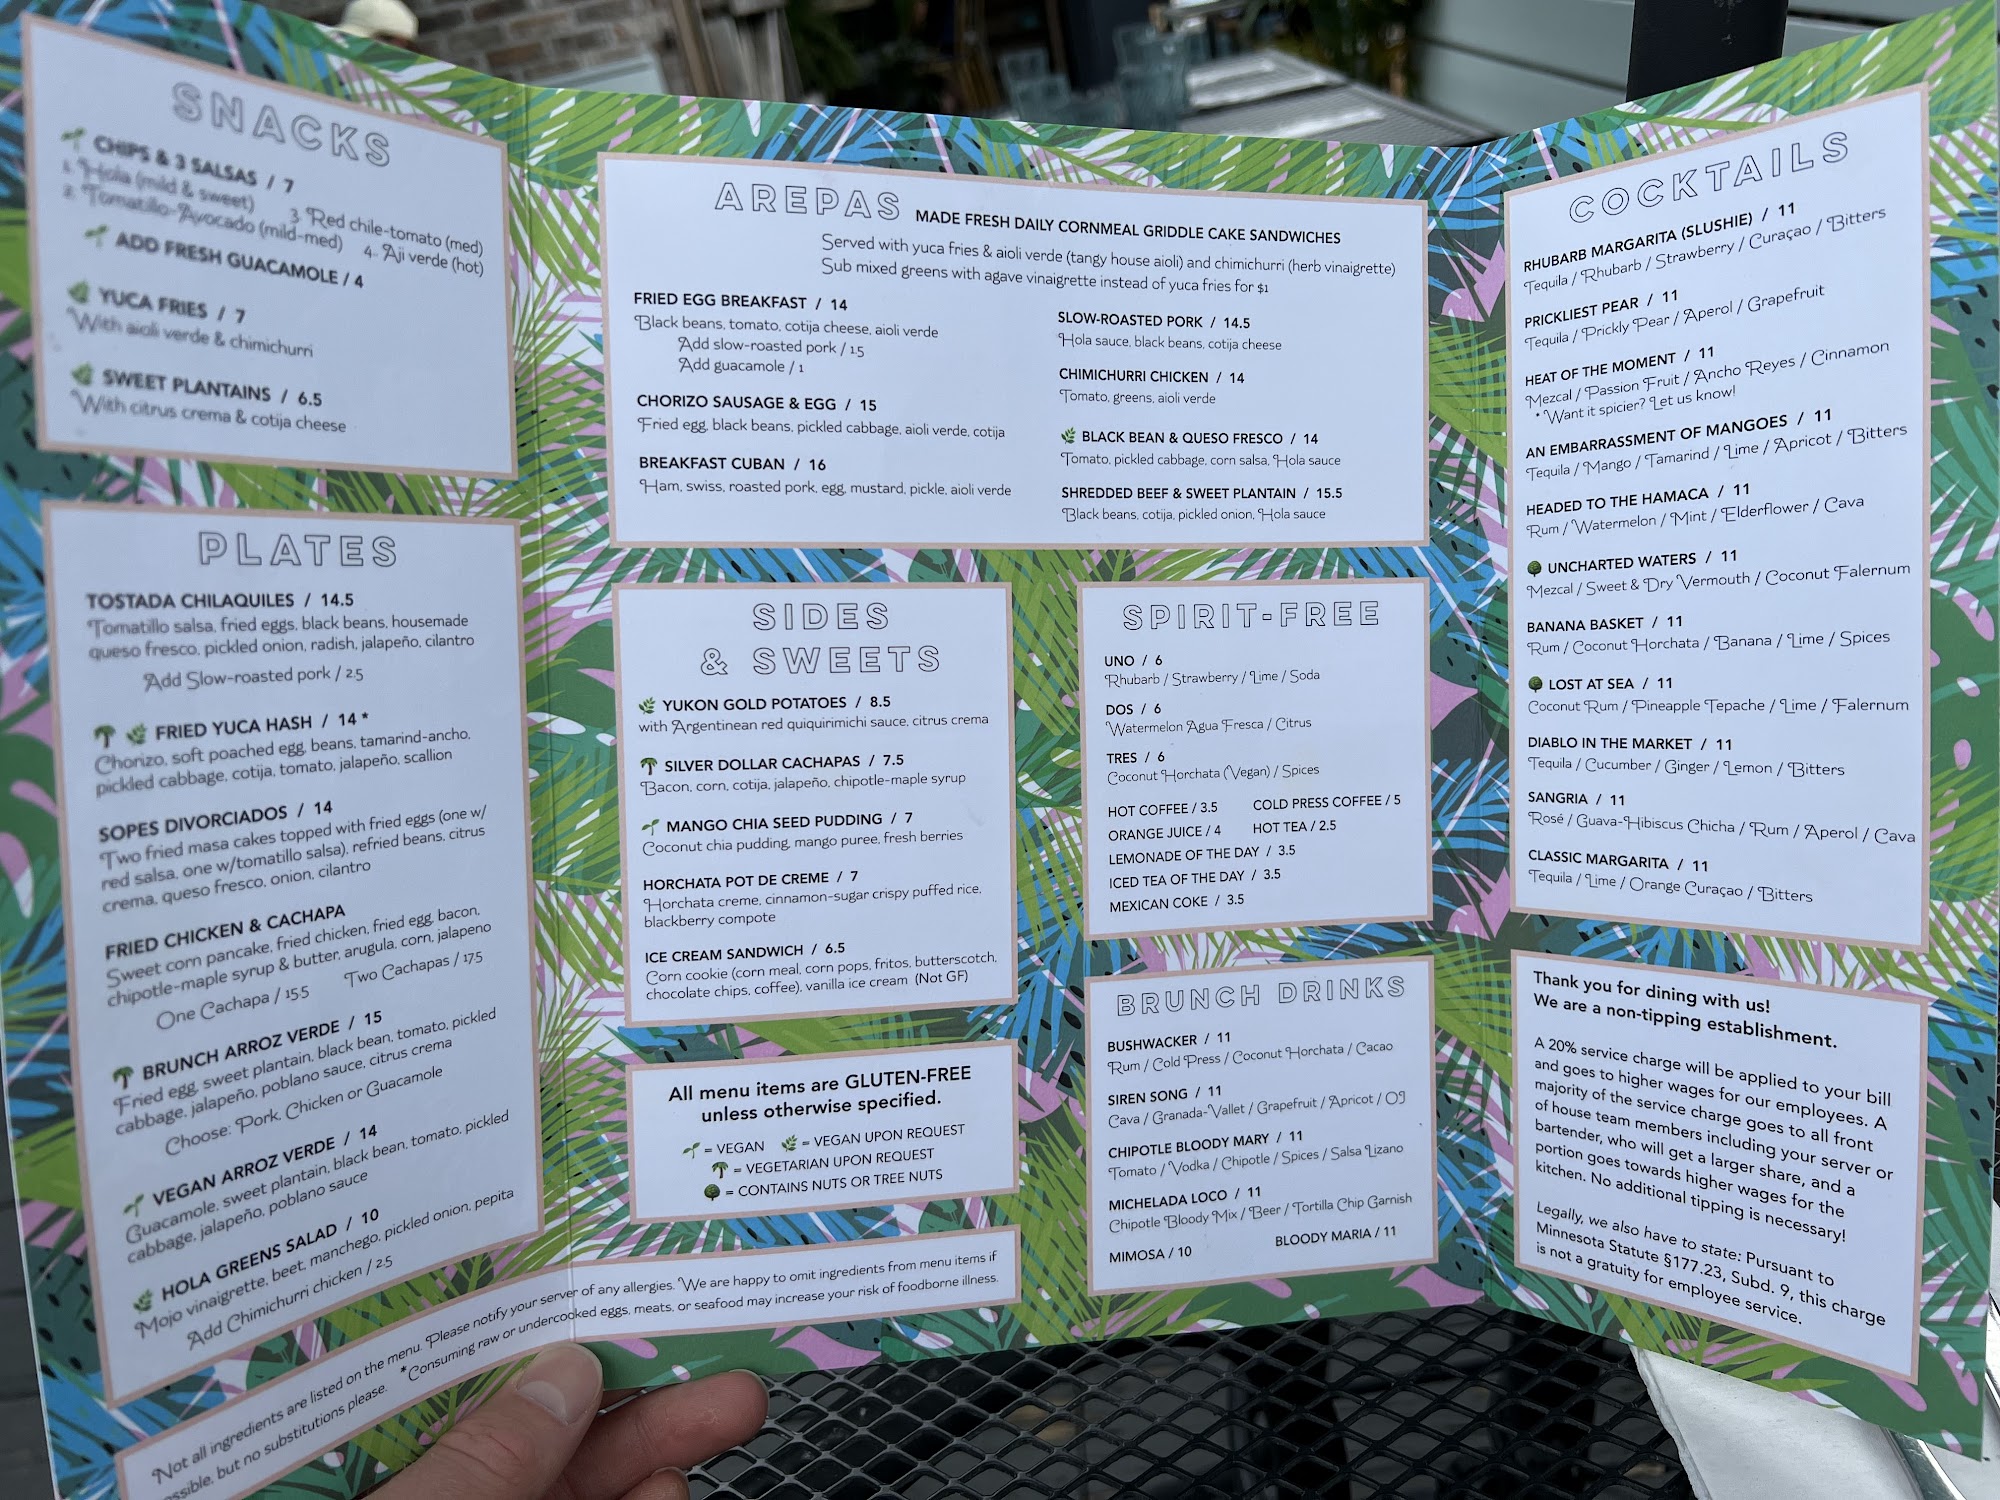 SNACKS
CHIPS & 3 SALSAS / 7
1. Hola (mild & sweet)
2. Tomatillo-Avocado (mild-med)
3. Red chile-tomato (med)
4. Aji verde (hot)
ADD FRESH GUACAMOLE / 4
YUCA FRIES / 7
With aioli verde & chimichurri
SWEET PLANTAINS / 6.5
With citrus crema & cotija cheese
PLATES
TOSTADA CHILAQUILES / 14.5
Tomatillo salsa, fried eggs, black beans, housemade
queso fresco, pickled onion, radish, jalapeño, cilantro
Add Slow-roasted pork / 2.5
FRIED YUCA HASH / 14 *
Chorizo, soft poached egg, beans, tamarind-ancho,
pickled cabbage, cotija, tomato, jalapeño, scallion
SOPES DIVORCIADOS / 14
Two fried masa cakes topped with fried eggs (one w/
red salsa, one w/tomatillo salsa), refried beans, citrus
crema, queso fresco, onion, cilantro
FRIED CHICKEN & CACHAPA
Sweet corn pancake, fried chicken, fried egg, bacon,
chipotle-maple syrup & butter, arugula, corn, jalapeno
One Cachapa / 15.5 Two Cachapas / 17.5
BRUNCH ARROZ VERDE / 15
Fried egg, sweet plantain, black bean, tomato, pickled
cabbage, jalapeño, poblano sauce, citrus crema
Choose: Pork, Chicken or Guacamole
VEGAN ARROZ VERDE / 14
Guacamole, sweet plantain, black bean, tomato, pickled
cabbage, jalapeño, poblano sauce
HOLA GREENS SALAD / 10
Mojo vinaigrette, beet, manchego, pickled onion, pepita
Add Chimichurri chicken / 2.5
AREPAS MADE FRESH DAILY CORNMEAL GRIDDLE CAKE SANDWICHES
Served with yuca fries & aioli verde (tangy house aioli) and chimichurri (herb vinaigrette)
Sub mixed greens with agave vinaigrette instead of yuca fries for $1
FRIED EGG BREAKFAST / 14
Black beans, tomato, cotija cheese, aioli verde
Add slow-roasted pork / 1.5
Add guacamole / 1
CHORIZO SAUSAGE & EGG / 15
Fried egg, black beans, pickled cabbage, aioli verde, cotija
BREAKFAST CUBAN / 16
Ham, swiss, roasted pork, egg, mustard, pickle, aioli verde
SLOW-ROASTED PORK / 14.5
Hola sauce, black beans, cotija cheese
CHIMICHURRI CHICKEN / 14
Tomato, greens, aioli verde
BLACK BEAN & QUESO FRESCO / 14
Tomato, pickled cabbage, corn salsa, Hola sauce
SHREDDED BEEF & SWEET PLANTAIN / 15.5
Black beans, cotija, pickled onion, Hola sauce
SIDES
& SWEETS
YUKON GOLD POTATOES / 8.5
with Argentinean red quiquirimichi sauce, citrus crema
SILVER DOLLAR CACHAPAS / 7.5
Bacon, corn, cotija, jalapeño, chipotle-maple syrup
MANGO CHIA SEED PUDDING / 7
Coconut chia pudding, mango puree, fresh berries
HORCHATA POT DE CREME / 7
Horchata creme, cinnamon-sugar crispy puffed rice,
blackberry compote
ICE CREAM SANDWICH / 6.5
Corn cookie (corn meal, corn pops, fritos, butterscotch,
chocolate chips, coffee), vanilla ice cream (Not GF)
All menu items are GLUTEN-FREE
unless otherwise specified.
= VEGAN = VEGAN UPON REQUEST
= VEGETARIAN UPON REQUEST
= CONTAINS NUTS OR TREE NUTS
Not all ingredients are listed on the menu. Please notify your server of any allergies. We are happy to omit ingredients from menu items if
possible, but no substitutions please. *Consuming raw or undercooked eggs, meats, or seafood may increase your risk of foodborne illness.
SPIRIT-FREE
UNO / 6
Rhubarb / Strawberry / Lime / Soda
DOS / 6
Watermelon Agua Fresca / Citrus
TRES / 6
Coconut Horchata (Vegan) / Spices
HOT COFFEE / 3.5 COLD PRESS COFFEE / 5
ORANGE JUICE / 4 HOT TEA / 2.5
LEMONADE OF THE DAY / 3.5
ICED TEA OF THE DAY / 3.5
MEXICAN COKE / 3.5
BRUNCH DRINKS
BUSHWACKER / 11
Rum / Cold Press / Coconut Horchata / Cacao
SIREN SONG / 11
Cava / Granada-Vallet / Grapefruit / Apricot / OJ
CHIPOTLE BLOODY MARY / 11
Tomato / Vodka / Chipotle / Spices / Salsa Lizano
MICHELADA LOCO / 11
Chipotle Bloody Mix / Beer / Tortilla Chip Garnish
MIMOSA / 10 BLOODY MARIA / 11
COCKTAILS
RHUBARB MARGARITA (SLUSHIE) / 11
Tequila / Rhubarb / Strawberry / Curaçao / Bitters
PRICKLIEST PEAR / 11
Tequila / Prickly Pear / Aperol / Grapefruit
HEAT OF THE MOMENT / 11
Mezcal / Passion Fruit / Ancho Reyes / Cinnamon
* Want it spicier? Let us know!
AN EMBARRASSMENT OF MANGOES / 11
Tequila / Mango / Tamarind / Lime / Apricot / Bitters
HEADED TO THE HAMACA / 11
Rum / Watermelon / Mint / Elderflower / Cava
UNCHARTED WATERS / 11
Mezcal / Sweet & Dry Vermouth / Coconut Falernum
BANANA BASKET / 11
Rum / Coconut Horchata / Banana / Lime / Spices
LOST AT SEA / 11
Coconut Rum / Pineapple Tepache / Lime / Falernum
DIABLO IN THE MARKET / 11
Tequila / Cucumber / Ginger / Lemon / Bitters
SANGRIA / 11
Rosé / Guava-Hibiscus Chicha / Rum / Aperol / Cava
CLASSIC MARGARITA / 11
Tequila / Lime / Orange Curaçao / Bitters
Thank you for dining with us!
We are a non-tipping establishment.
A 20% service charge will be applied to your bill
and goes to higher wages for our employees. A
majority of the service charge goes to all front
of house team members including your server or
bartender, who will get a larger share, and a
portion goes towards higher wages for the
kitchen. No additional tipping is necessary!
Legally, we also have to state: Pursuant to
Minnesota Statute §177.23, Subd. 9, this charge
is not a gratuity for employee service.